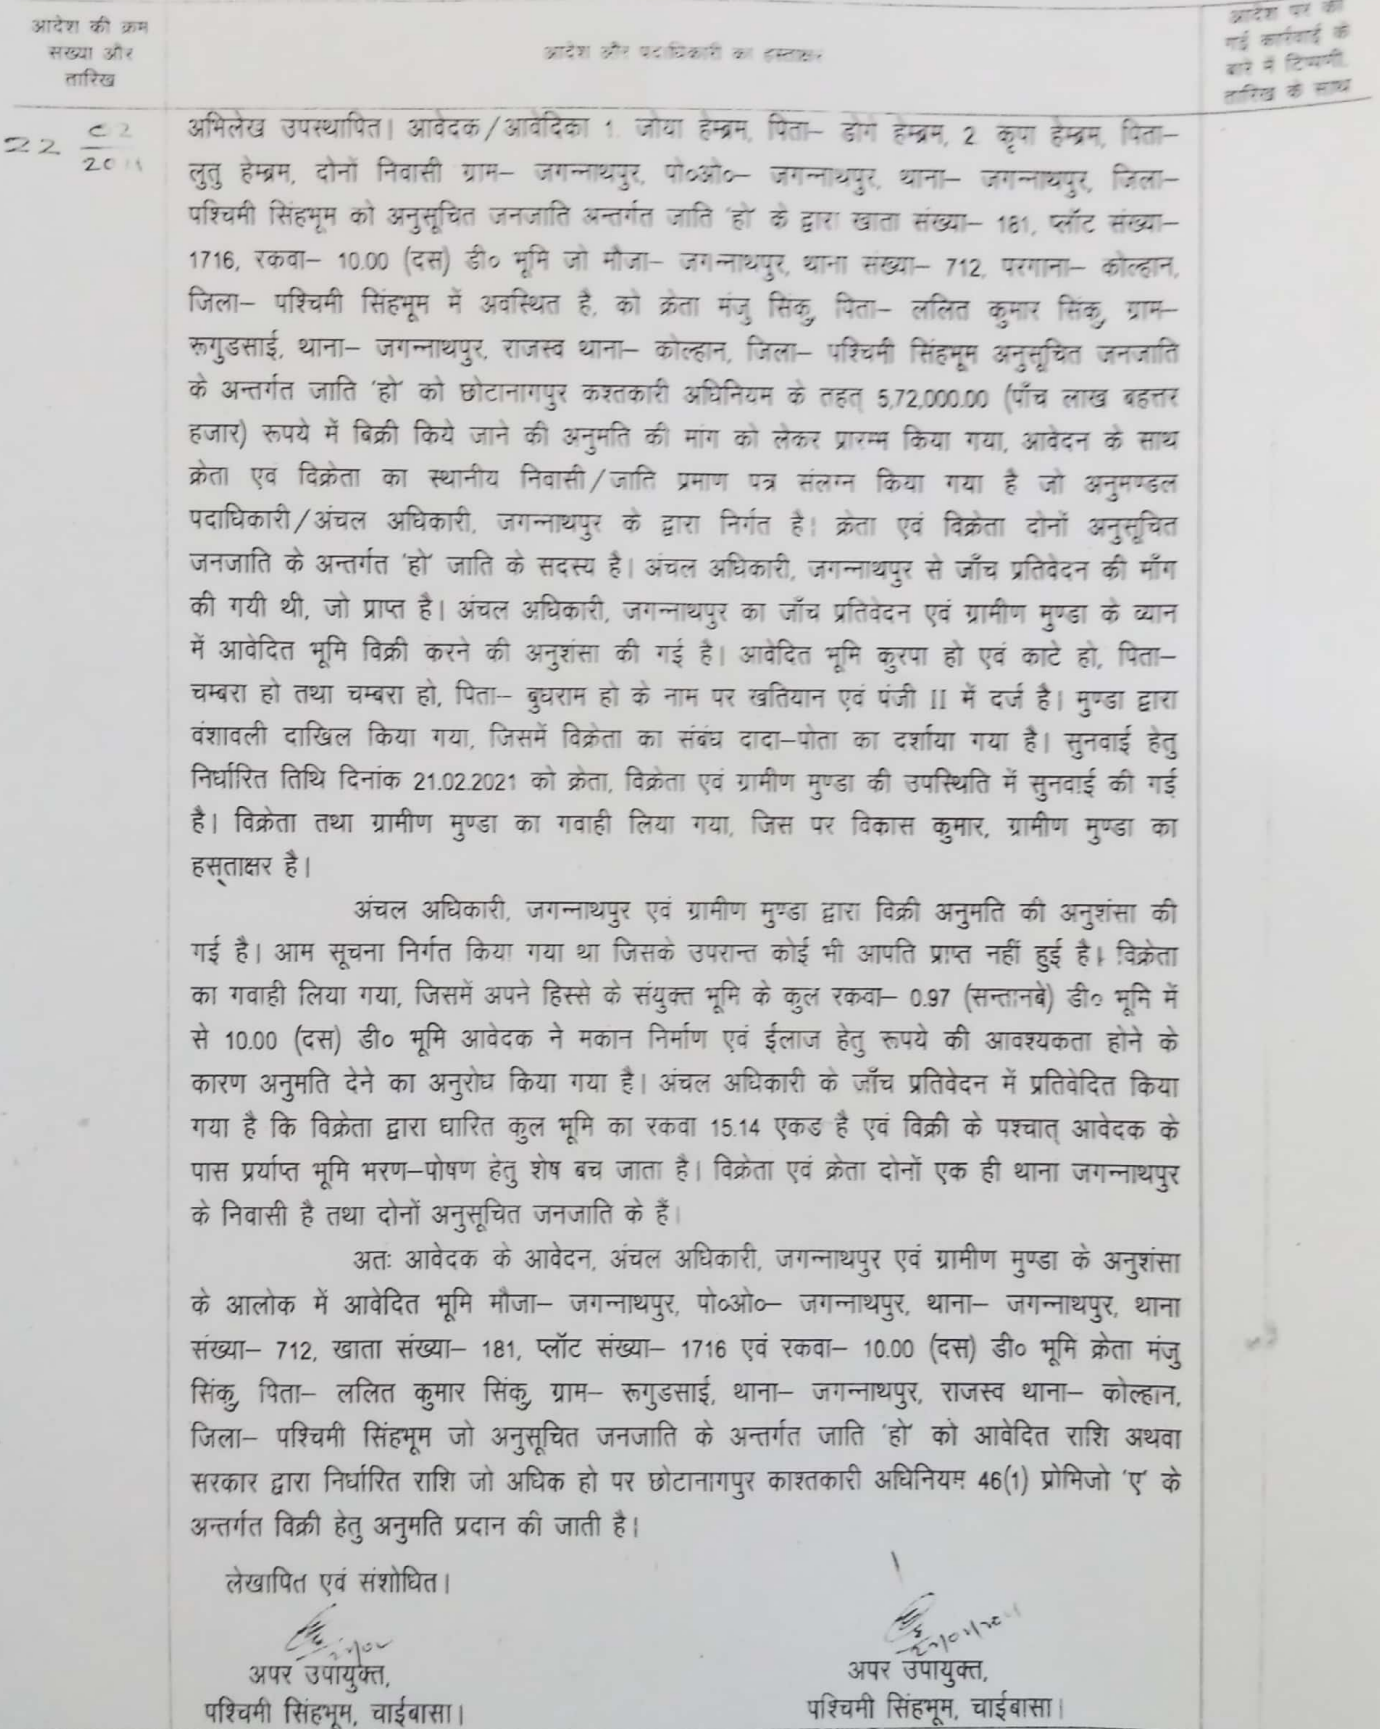 आदेश की क्रम
सख्या और
तारिख
आदेश और पदाधिकारी का हस्ताक्षर
आदेश पर की
गई कार्रवाई के
बारे में टिप्पणी,
तारिख के साथ
22
अभिलेख उपस्थापित। आवेदक/आवेदिका 1. जोया हेम्ब्रम, पिता– डोगे हेम्ब्रम, 2. कृपा हेम्ब्रम, पिता–
लुतु हेम्ब्रम, दोनों निवासी ग्राम– जगन्नाथपुर, पो०ओ०– जगन्नाथपुर, थाना– जगन्नाथपुर, जिला–
पश्चिमी सिंहभूम को अनुसूचित जनजाति अन्तर्गत जाति 'हो' के द्वारा खाता संख्या– 181, प्लॉट संख्या–
1716, रकवा– 10.00 (दस) डी० भूमि जो मौजा– जगन्नाथपुर, थाना संख्या– 712, परगाना– कोल्हान,
जिला– पश्चिमी सिंहभूम में अवस्थित है, को क्रेता मंजु सिंकु, पिता– ललित कुमार सिंकु, ग्राम–
रूगुडसाई, थाना– जगन्नाथपुर, राजस्व थाना– कोल्हान, जिला– पश्चिमी सिंहभूम अनुसूचित जनजाति
के अन्तर्गत जाति 'हो' को छोटानागपुर कश्तकारी अधिनियम के तहत् 5,72,000.00 (पाँच लाख बहत्तर
हजार) रूपये में बिक्री किये जाने की अनुमति की मांग को लेकर प्रारम्भ किया गया, आवेदन के साथ
क्रेता एवं विक्रेता का स्थानीय निवासी/जाति प्रमाण पत्र संलग्न किया गया है जो अनुमण्डल
पदाधिकारी/अंचल अधिकारी, जगन्नाथपुर के द्वारा निर्गत है। क्रेता एवं विक्रेता दोनों अनुसूचित
जनजाति के अन्तर्गत 'हो' जाति के सदस्य है। अंचल अधिकारी, जगन्नाथपुर से जाँच प्रतिवेदन की माँग
की गयी थी, जो प्राप्त है। अंचल अधिकारी, जगन्नाथपुर का जाँच प्रतिवेदन एवं ग्रामीण मुण्डा के ब्यान
में आवेदित भूमि विक्री करने की अनुशंसा की गई है। आवेदित भूमि कुरपा हो एवं काटे हो, पिता–
चम्बरा हो तथा चम्बरा हो, पिता– बुधराम हो के नाम पर खतियान एवं पंजी II में दर्ज है। मुण्डा द्वारा
वंशावली दाखिल किया गया, जिसमें विक्रेता का संबंध दादा–पोता का दर्शाया गया है। सुनवाई हेतु
निर्धारित तिथि दिनांक 21.02.2021 को क्रेता, विक्रेता एवं ग्रामीण मुण्डा की उपस्थिति में सुनवाई की गई
है। विक्रेता तथा ग्रामीण मुण्डा का गवाही लिया गया, जिस पर विकास कुमार, ग्रामीण मुण्डा का
हस्ताक्षर है।
अंचल अधिकारी, जगन्नाथपुर एवं ग्रामीण मुण्डा द्वारा विक्री अनुमति की अनुशंसा की
गई है। आम सूचना निर्गत किया गया था जिसके उपरान्त कोई भी आपति प्राप्त नहीं हुई है। विक्रेता
का गवाही लिया गया, जिसमें अपने हिस्से के संयुक्त भूमि के कुल रकवा– 0.97 (सन्तानबे) डी० भूमि में
से 10.00 (दस) डी० भूमि आवेदक ने मकान निर्माण एवं ईलाज हेतु रूपये की आवश्यकता होने के
कारण अनुमति देने का अनुरोध किया गया है। अंचल अधिकारी के जाँच प्रतिवेदन में प्रतिवेदित किया
गया है कि विक्रेता द्वारा धारित कुल भूमि का रकवा 15.14 एकड है एवं विक्री के पश्चात् आवेदक के
पास प्रर्याप्त भूमि भरण–पोषण हेतु शेष बच जाता है। विक्रेता एवं क्रेता दोनों एक ही थाना जगन्नाथपुर
के निवासी है तथा दोनों अनुसूचित जनजाति के हैं।
अतः आवेदक के आवेदन, अंचल अधिकारी, जगन्नाथपुर एवं ग्रामीण मुण्डा के अनुशंसा
के आलोक में आवेदित भूमि मौजा– जगन्नाथपुर, पो०ओ०– जगन्नाथपुर, थाना– जगन्नाथपुर, थाना
संख्या– 712, खाता संख्या– 181, प्लॉट संख्या– 1716 एवं रकवा– 10.00 (दस) डी० भूमि क्रेता मंजु
सिंकु, पिता– ललित कुमार सिंकु, ग्राम– रूगुडसाई, थाना– जगन्नाथपुर, राजस्व थाना– कोल्हान,
जिला– पश्चिमी सिंहभूम जो अनुसूचित जनजाति के अन्तर्गत जाति 'हो' को आवेदित राशि अथवा
सरकार द्वारा निर्धारित राशि जो अधिक हो पर छोटानागपुर काश्तकारी अधिनियम 46(1) प्रोभिजो 'ए' के
अन्तर्गत विक्री हेतु अनुमति प्रदान की जाती है।
लेखापित एवं संशोधित।
अपर उपायुक्त,
पश्चिमी सिंहभूम, चाईबासा।
अपर उपायुक्त,
पश्चिमी सिंहभूम, चाईबासा।